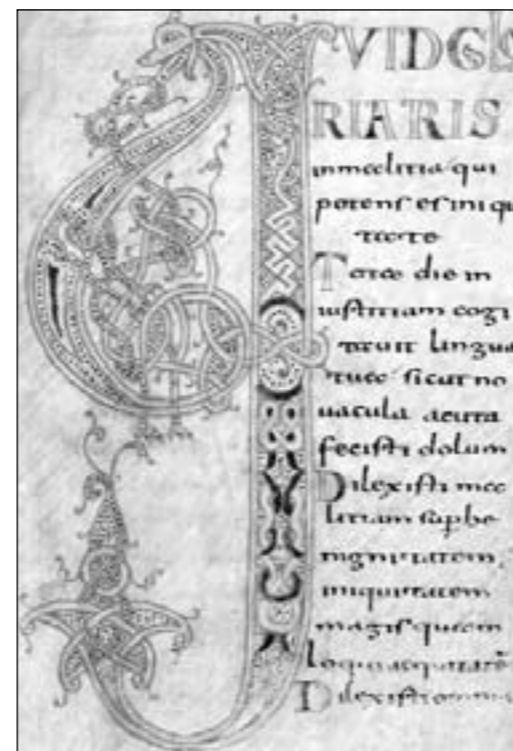 QVIDGLO
RIARIS
inmalitia qui
potens es iniqu
tate
Tota die in
iustitiam cogi
tauit lingua
tua sicut no
uacula acuta
fecisti dolum
Dilexisti ma
litiam sup be
nignitatem
iniquitatem
magis quam
loqui aequitatē
Dilexisti omni